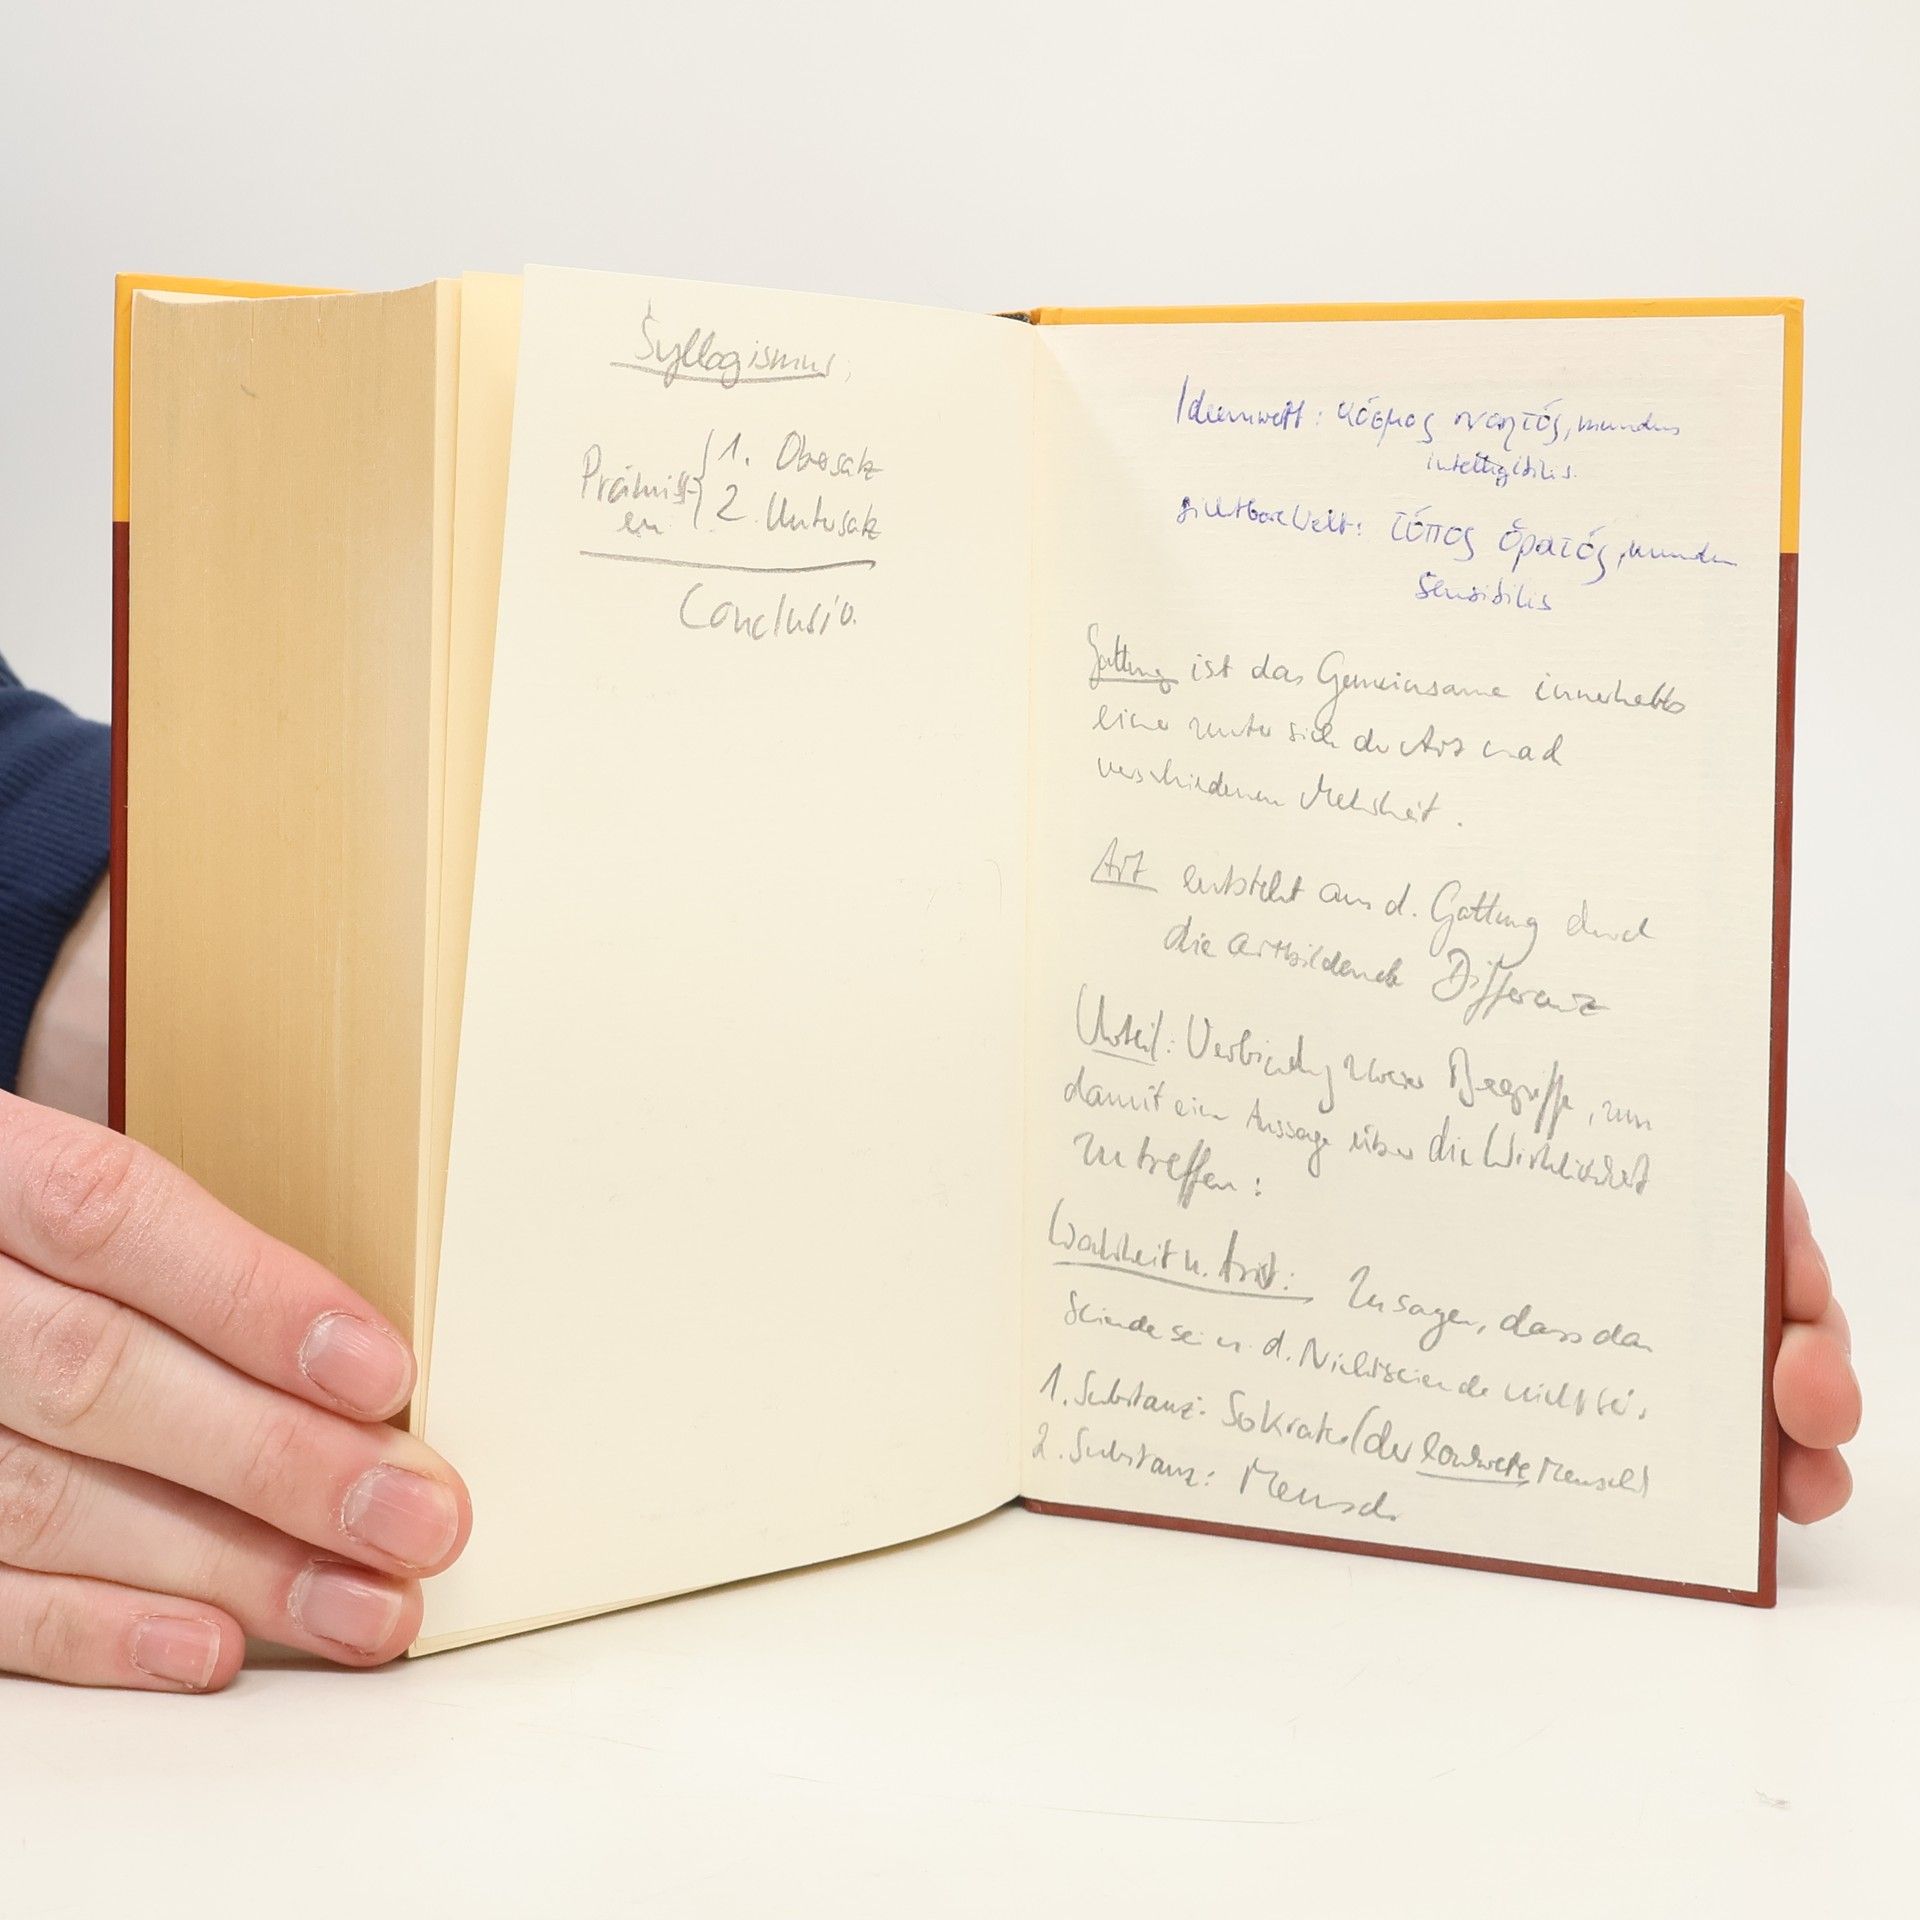 Syllogismus:
Prämiss- { 1. Obersatz
en { 2. Untersatz
Conclusio.
Ideenwelt: κόσμος νοητός, mundus
intelligibilis.
sichtbare Welt: τόπος ὁρατός, mundus
sensibilis
Gattung ist das Gemeinsame innerhalb
einer unter sich der Art nach
verschiedenen Mehrheit.
Art entsteht aus d. Gattung durch
die artbildende Differenz
Urteil: Verbindung zweier Begriffe, um
damit eine Aussage über die Wirklichkeit
zu treffen:
Wahrheit n. Arist.: Zu sagen, dass das
Seiende sei u. d. Nichtseiende nicht sei.
1. Substanz: Sokrates (der konkrete Mensch)
2. Substanz: Mensch